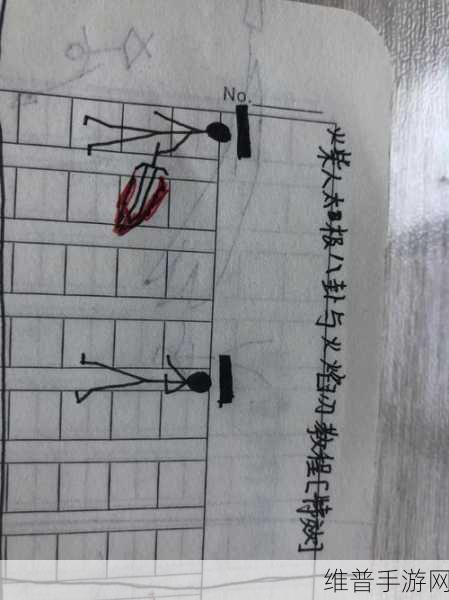 No.
火柴人太极八卦与火焰刃教程[特效]
维普手游网